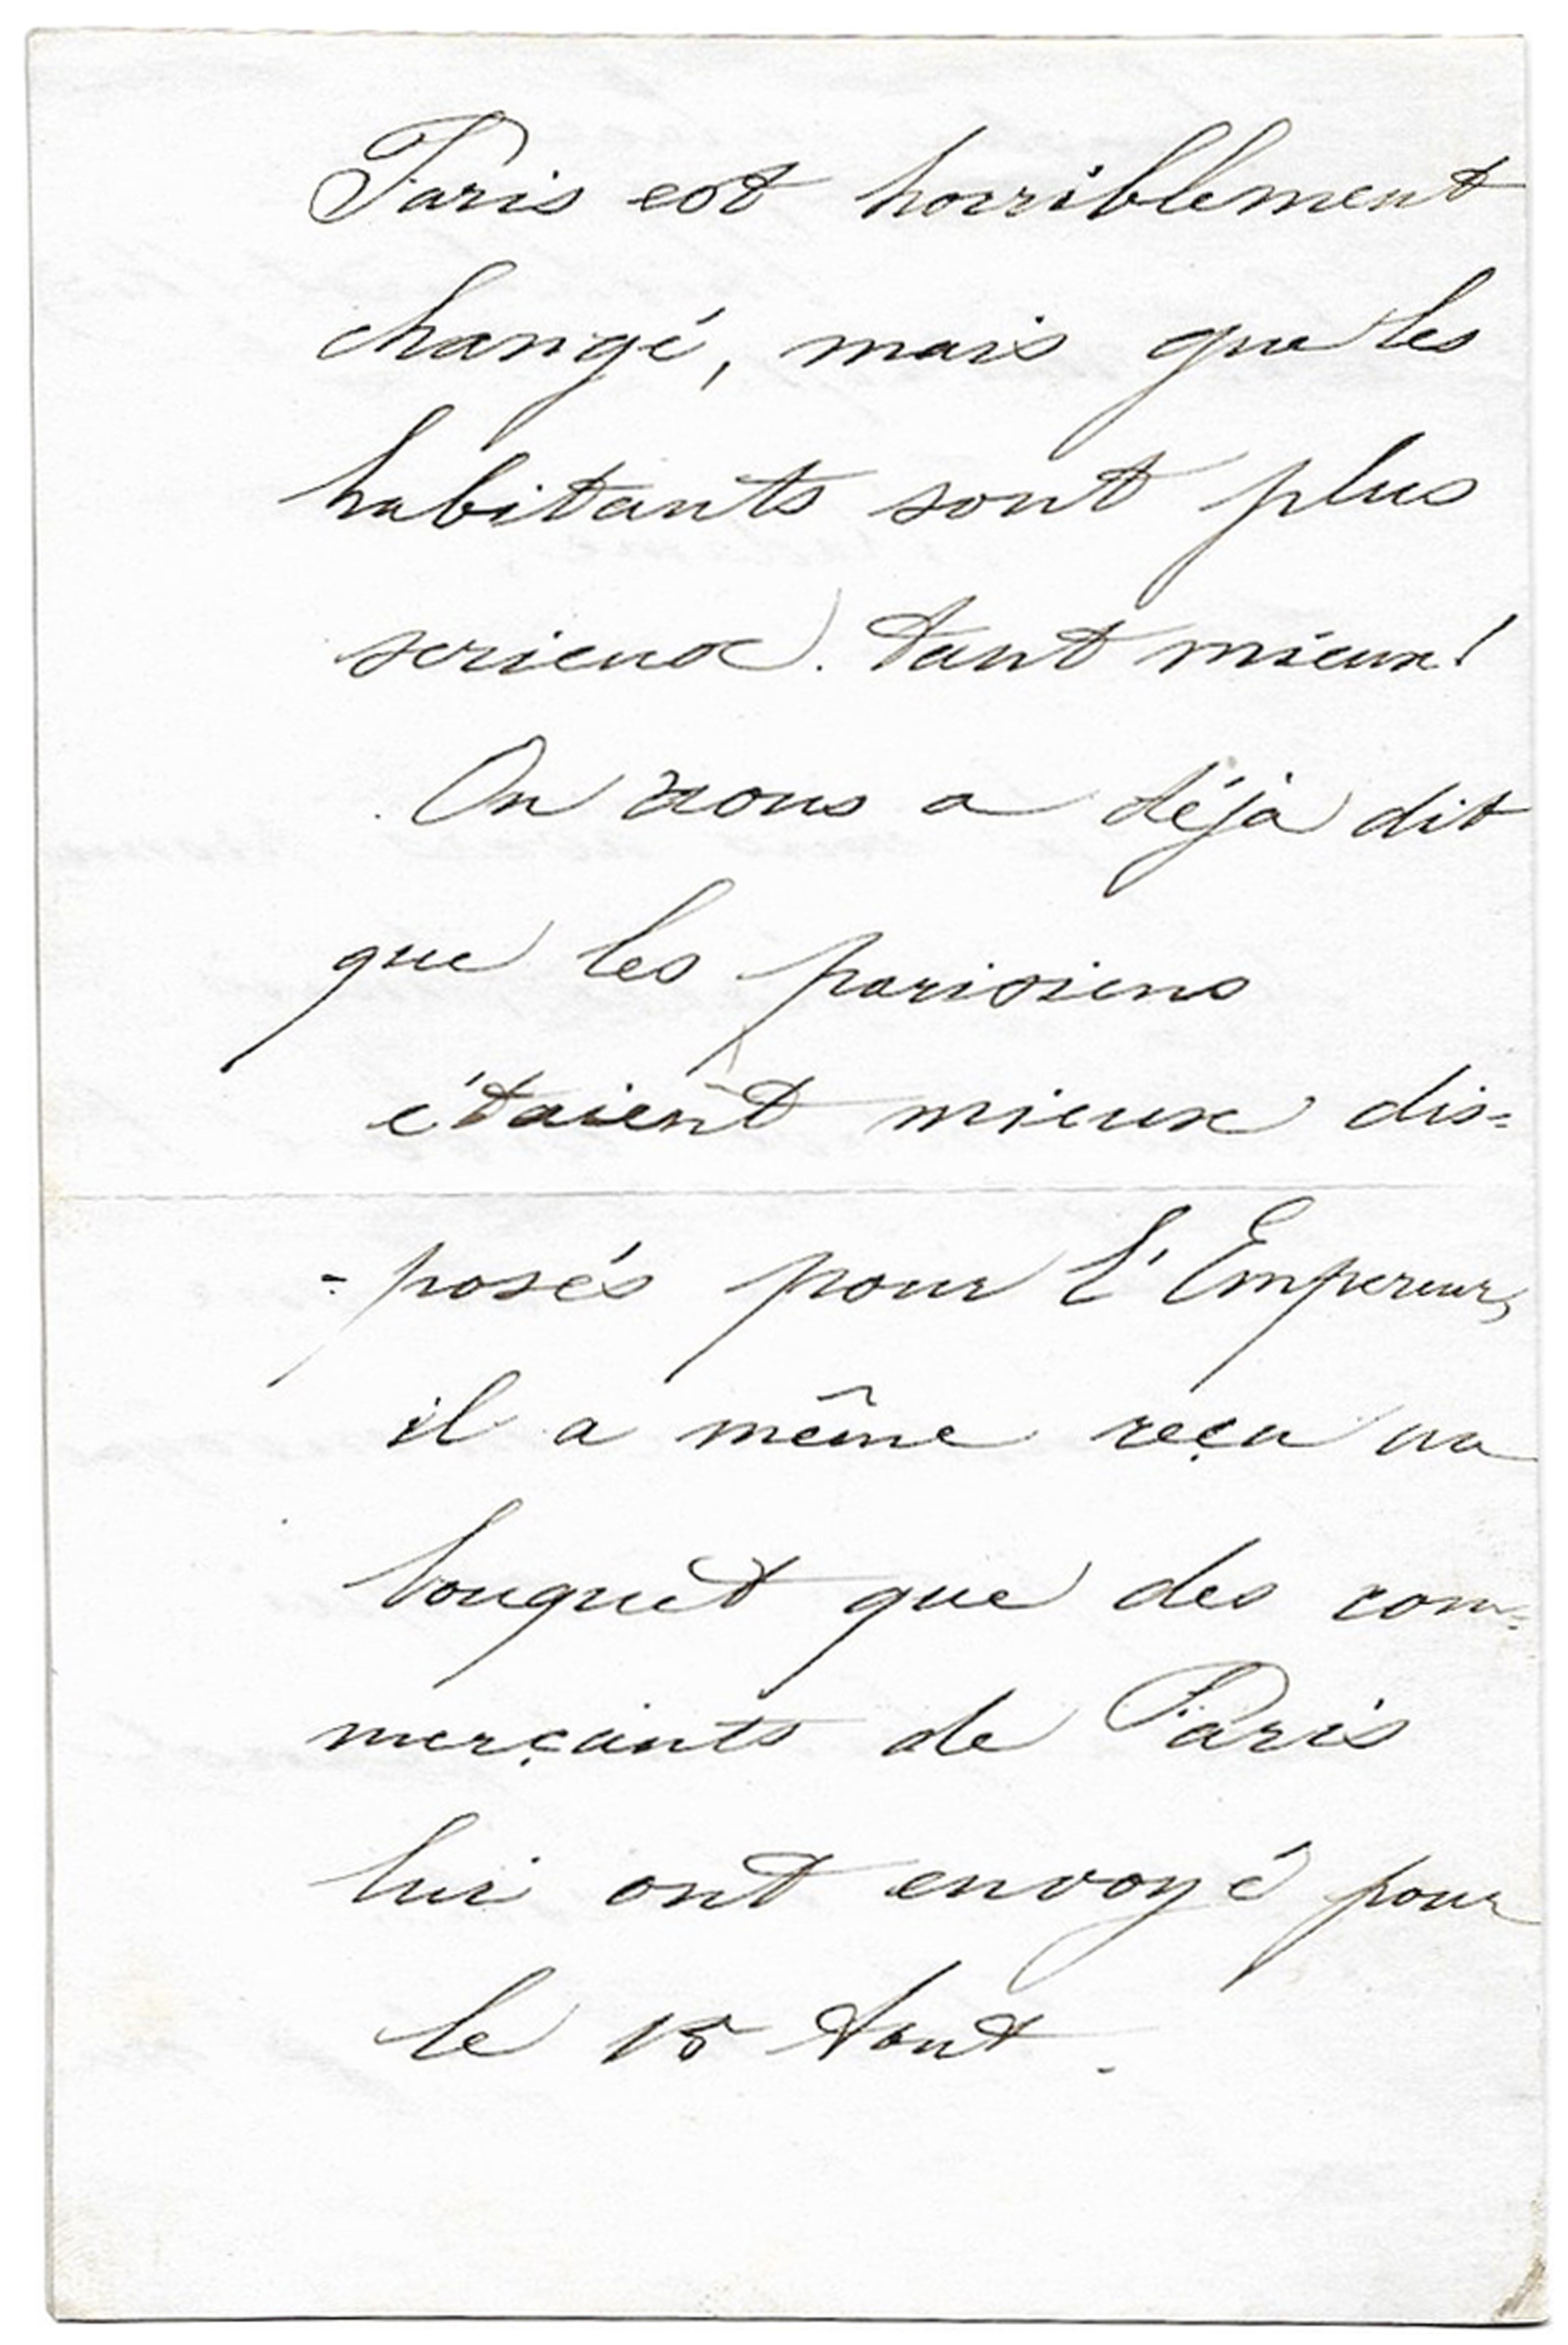 Paris est horriblement
changé, mais que les
habitants sont plus
serieux. tant mieux!
On nous a déjà dit
que les parisiens
étaient mieux dis=
=posés pour l'Empereur,
il a même reçu un
bouquet que des com=
merçants de Paris
lui ont envoyé pour
le 15 Aout.